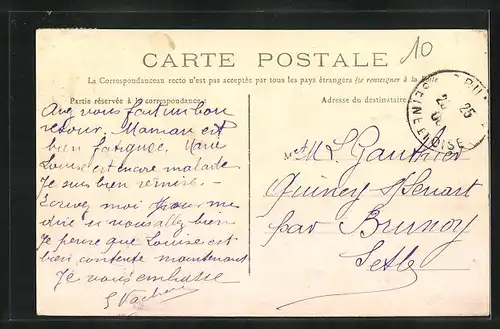 CARTE POSTALE
10
La Correspondance au recto n'est pas acceptée par tous les pays étrangers (se renseigner à la Poste
Partie réservée à la correspondance
Adresse du destinataire
Avez vous fait un bon
retour. Maman est
bien fatiguée. Marie
Louise est encore malade
Je suis bien remise. -
Ecrivez moi pour me
dire si vous allez bien
Je pense que Louise est
bien contente maintenant
Je vous embrasse
M
L Gauthier
Quincy s/ Senart
par Brunoy
S et O
25
SEINE ET OISE